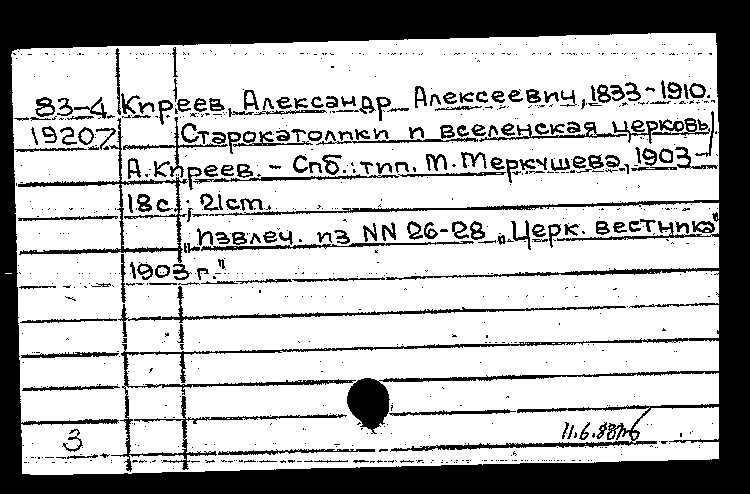 83-4 Киреев, Александр Алексеевич, 1833-1910.
19207 Старокатолики и вселенская церковь/
А. Киреев. - Спб.: тип. М. Меркушева, 1903 -
18с.; 21cm.
„Извлеч. из NN 26-28 „Церк. вестника"
1903 г."
3 11.6.88